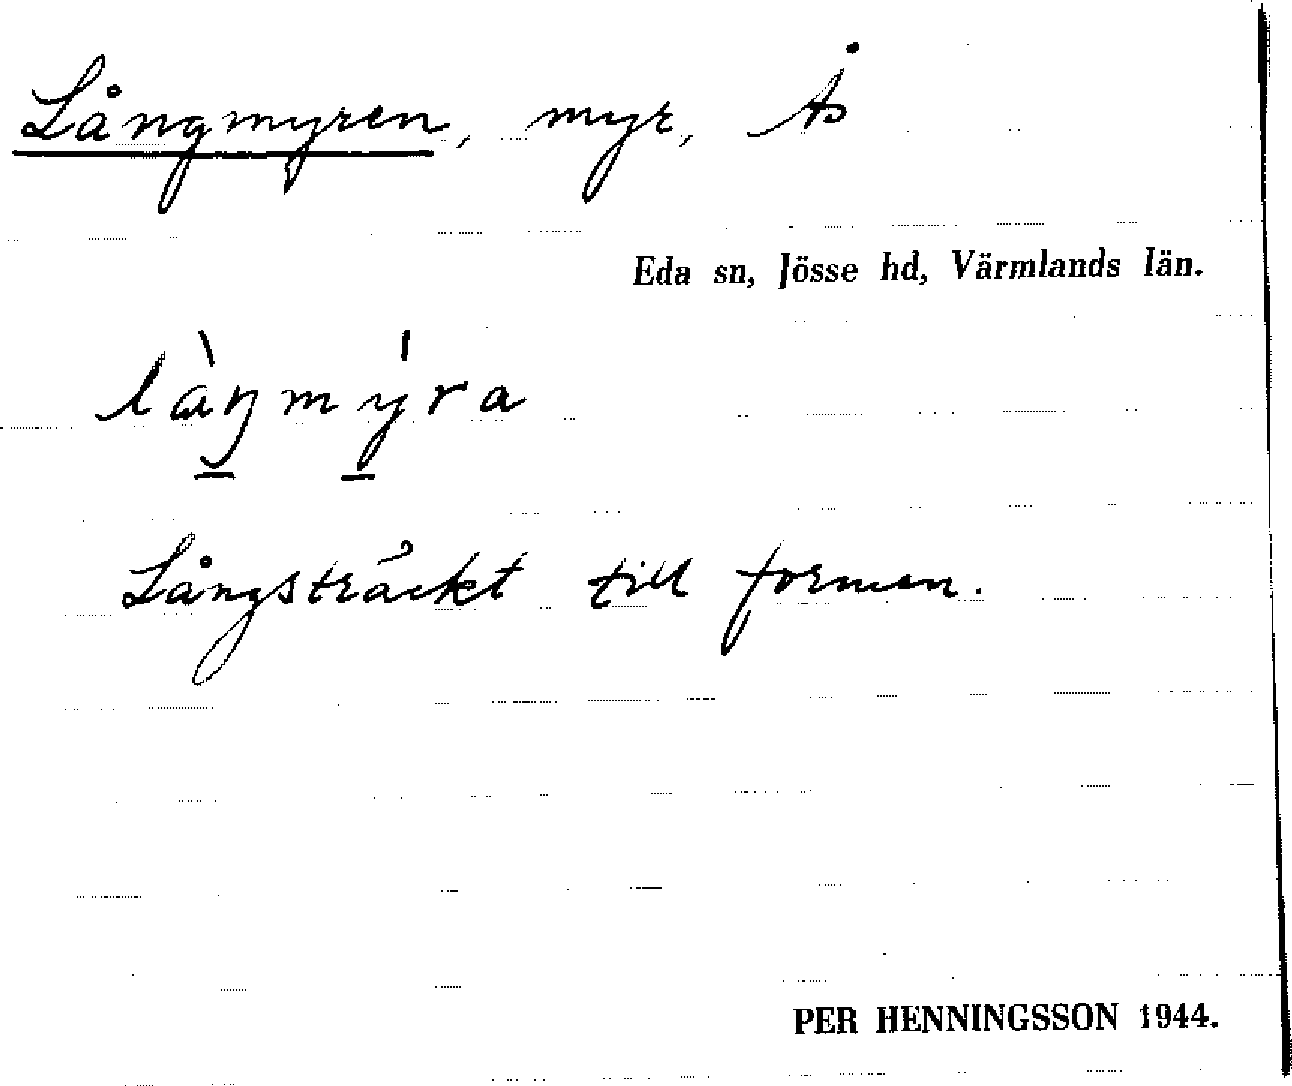 Långmyren, myr, Ås
Eda sn, Jösse hd, Värmlands län.
là̱ŋmý̱ra
Långsträckt till formen.
PER HENNINGSSON 1944.